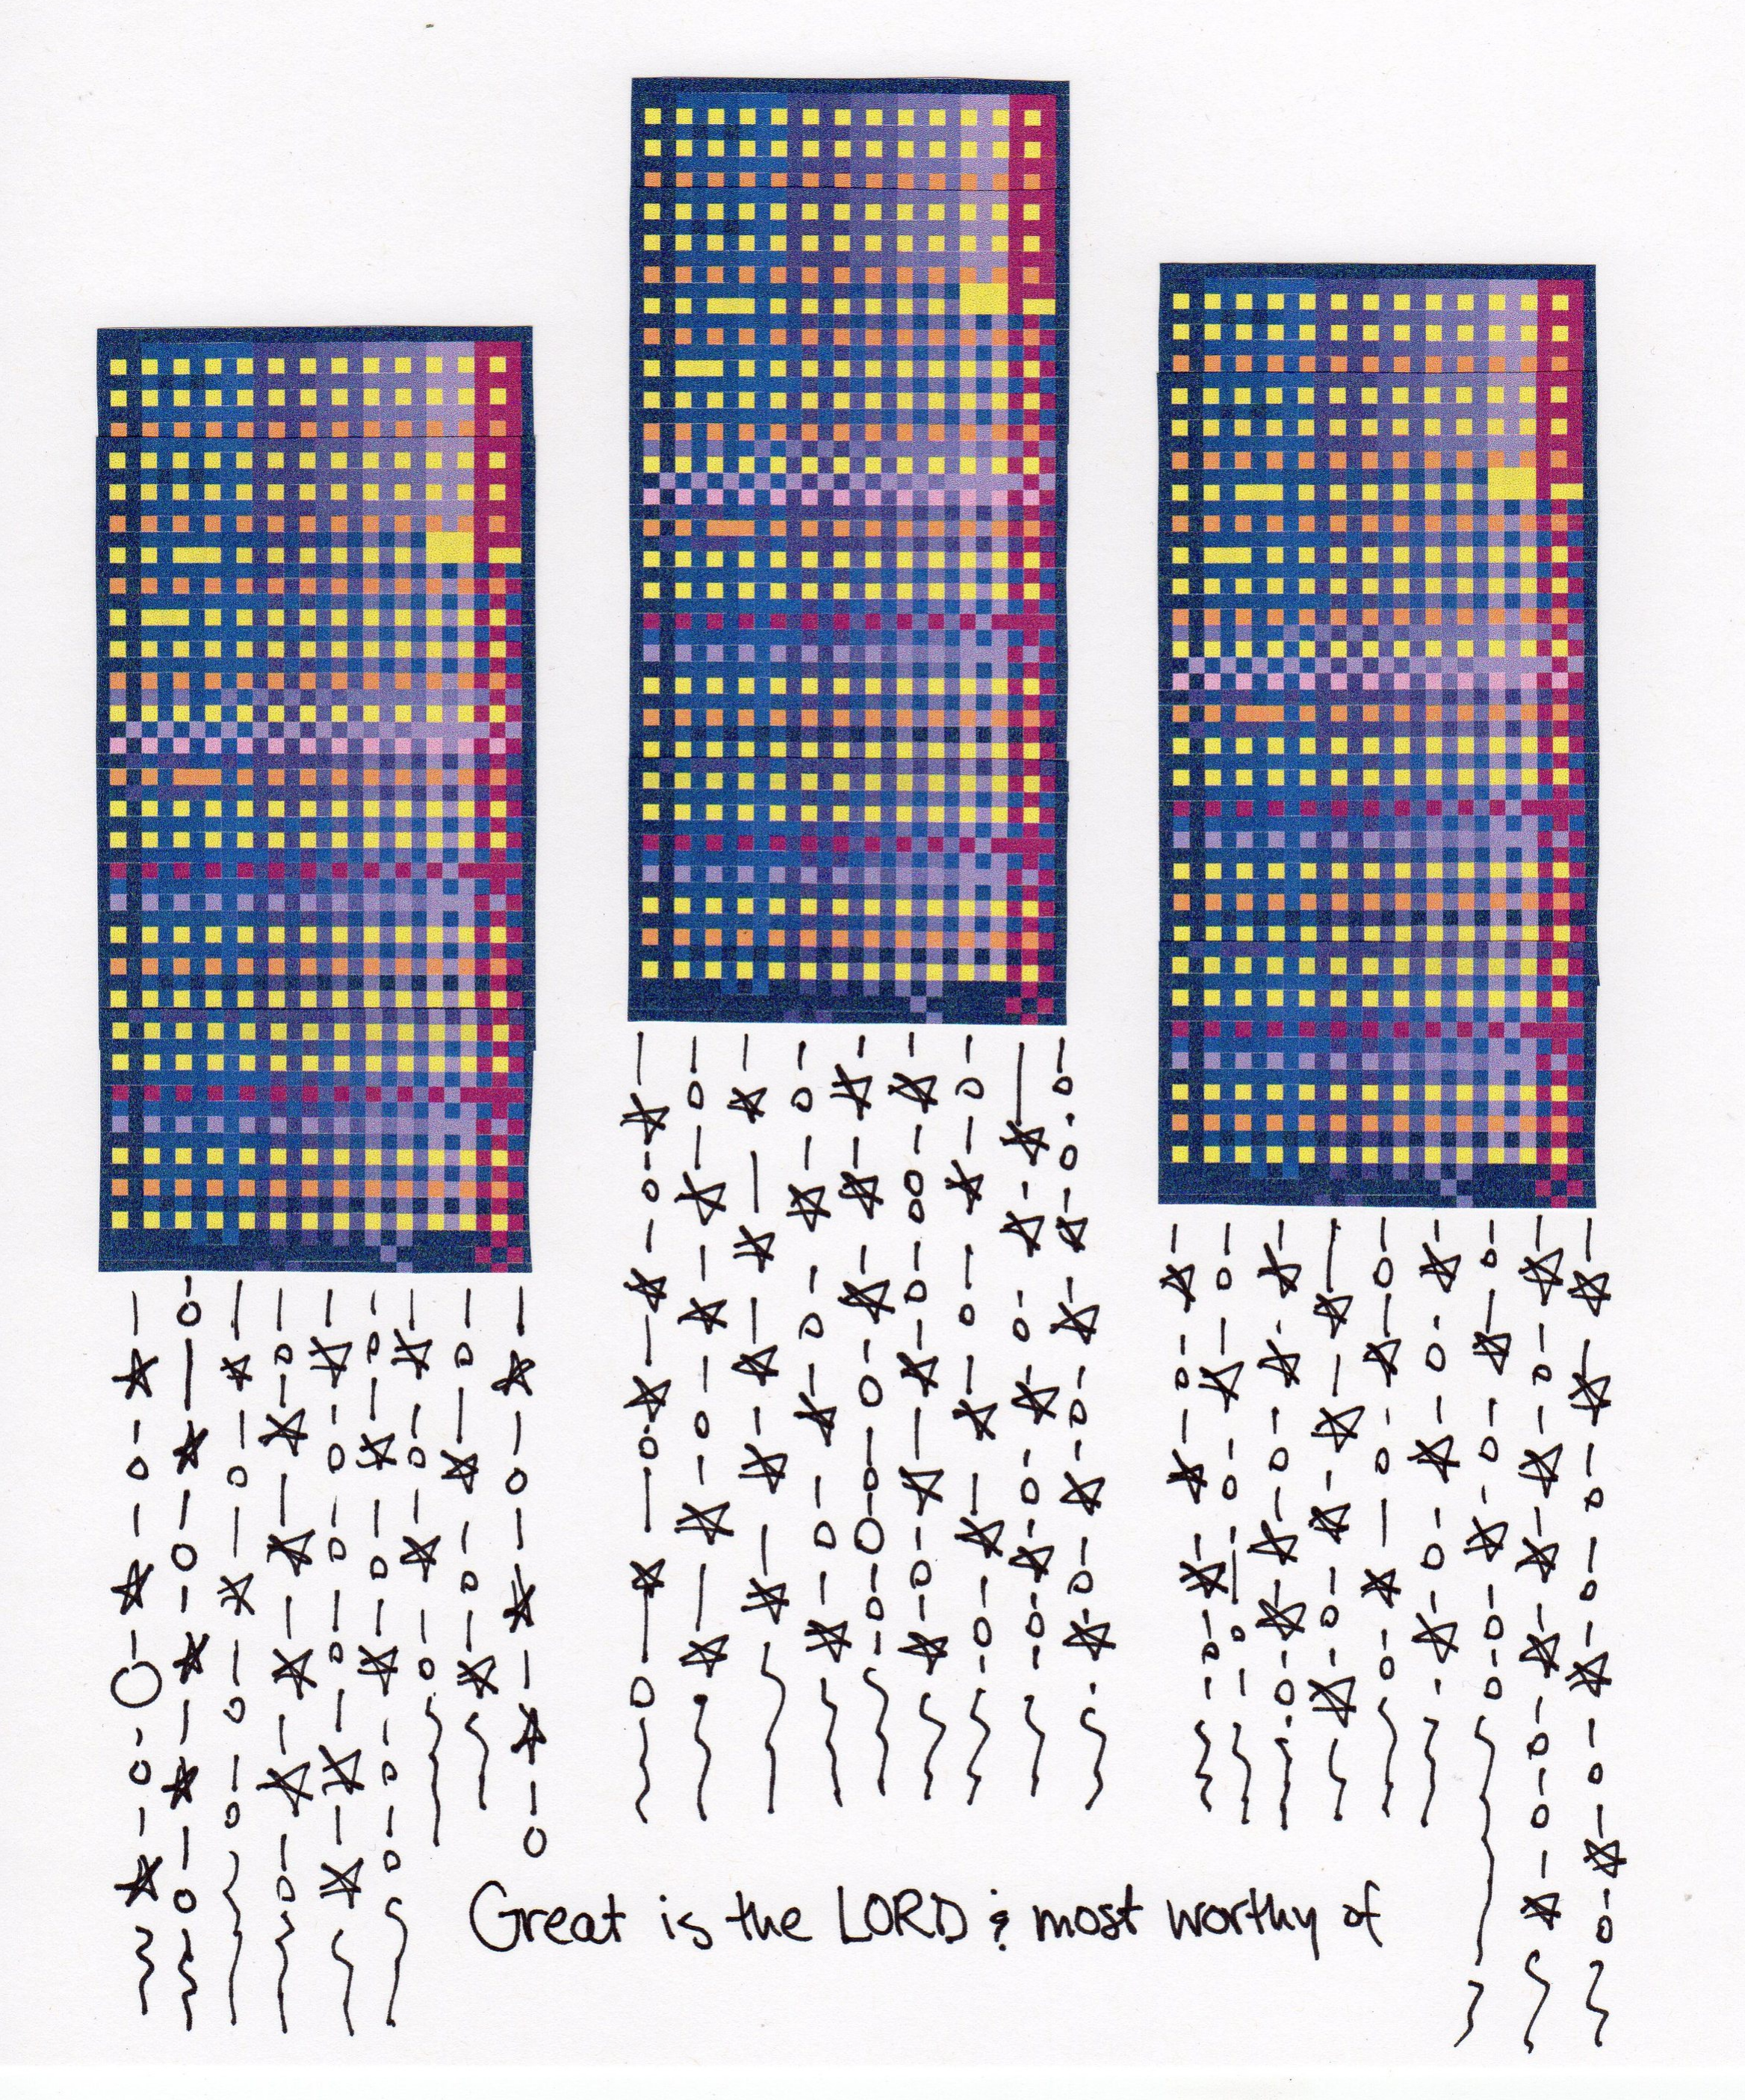 Great is the LORD & most worthy of